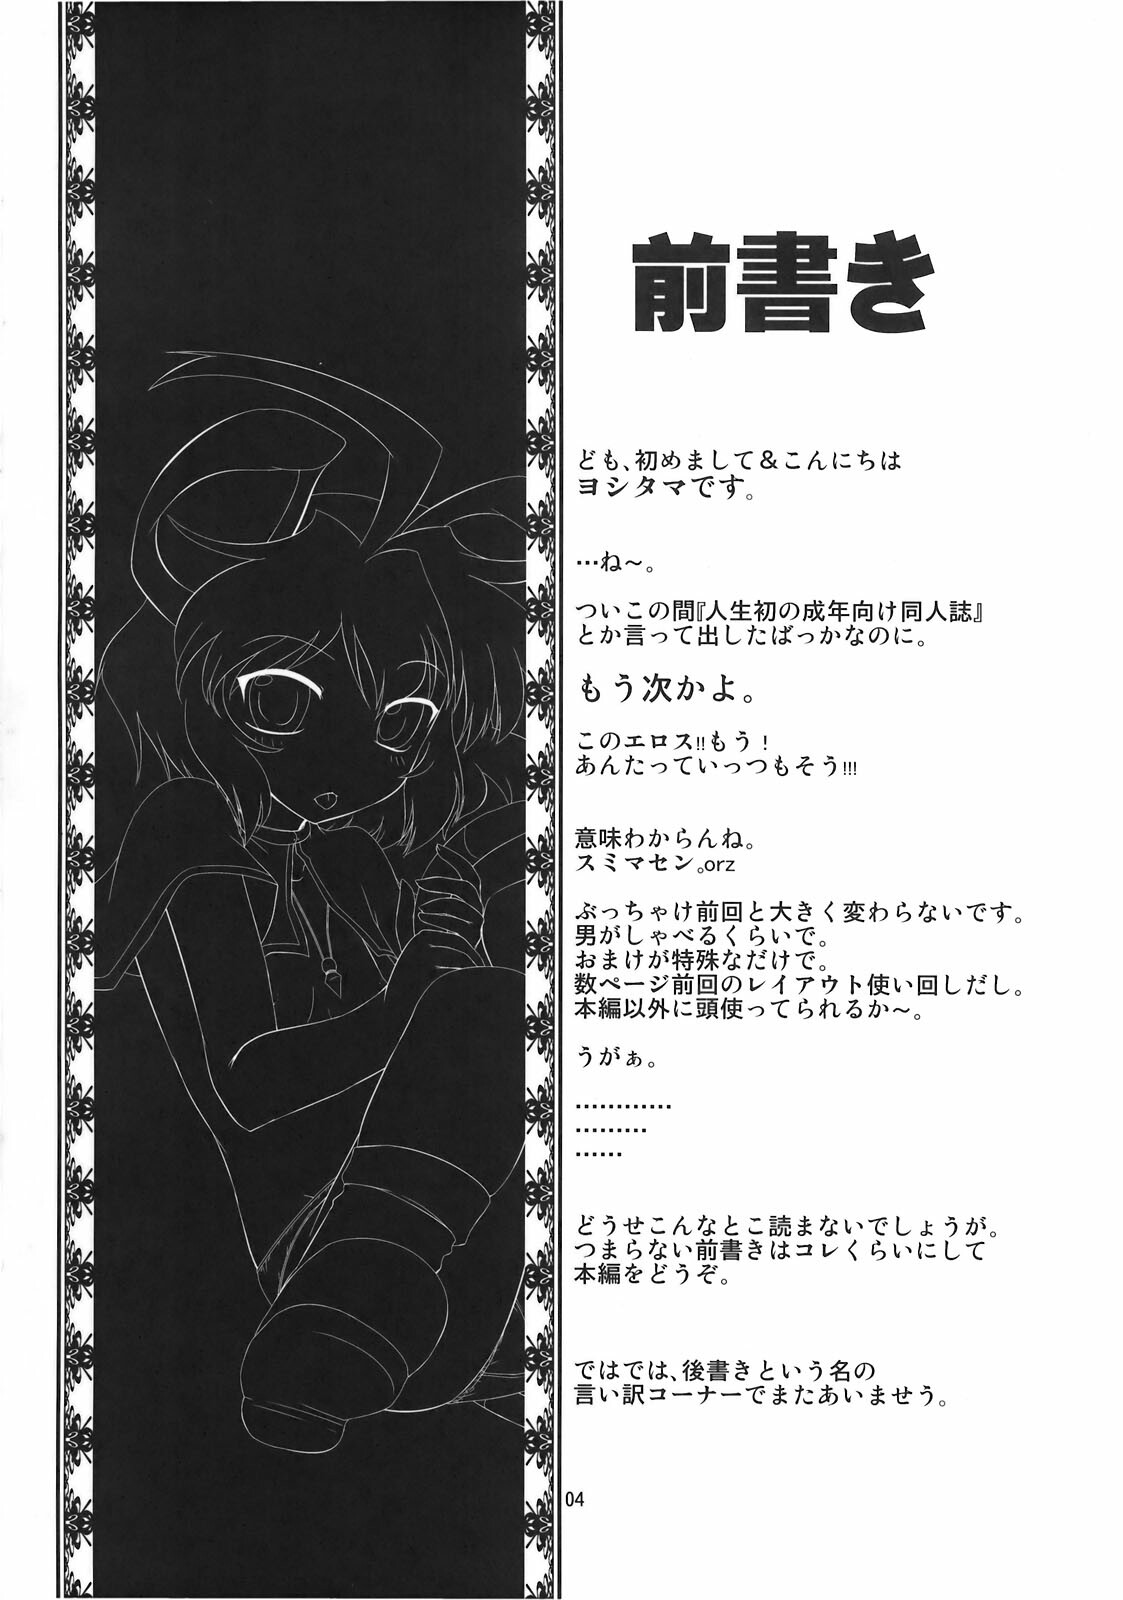 前書き
ども、初めまして＆こんにちは
ヨシタマです。
…ね～。
ついこの間『人生初の成年向け同人誌』
とか言って出したばっかなのに。
もう次かよ。
このエロス!!もう！
あんたっていっつもそう!!!
意味わからんね。
スミマセン。orz
ぶっちゃけ前回と大きく変わらないです。
男がしゃべるくらいで。
おまけが特殊なだけで。
数ページ前回のレイアウト使い回しだし。
本編以外に頭使ってられるか～。
うがぁ。
…………
………
……
どうせこんなとこ読まないでしょうが。
つまらない前書きはコレくらいにして
本編をどうぞ。
ではでは、後書きという名の
言い訳コーナーでまたあいませう。
04